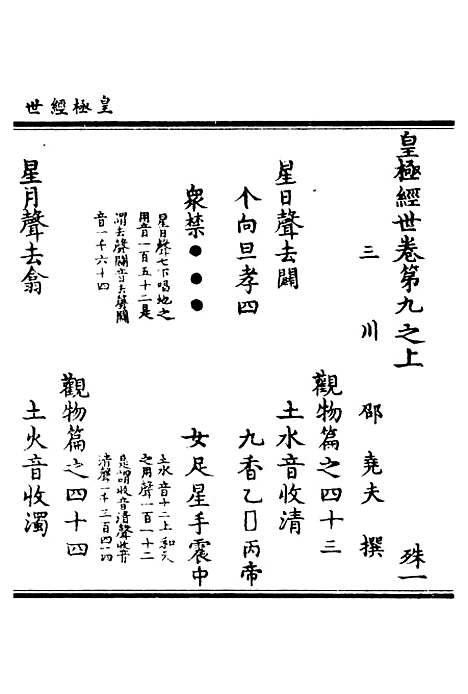 皇極經世
皇極經世卷第九之上
殊一
三川 邵堯夫 撰
觀物篇之四十三
星日聲去闢
土水音收清
个向旦孝四
九香乙□丙帝
衆禁●●●
女足星手震中
星日聲七下唱地之
用音一百五十二是
謂去聲闢音去聲闢
音一千六十四
土水音十二上和天
之用聲一百一十二
是謂收音清聲收音
清聲一千三百四十四
觀物篇之四十四
星月聲去翕
土火音收濁